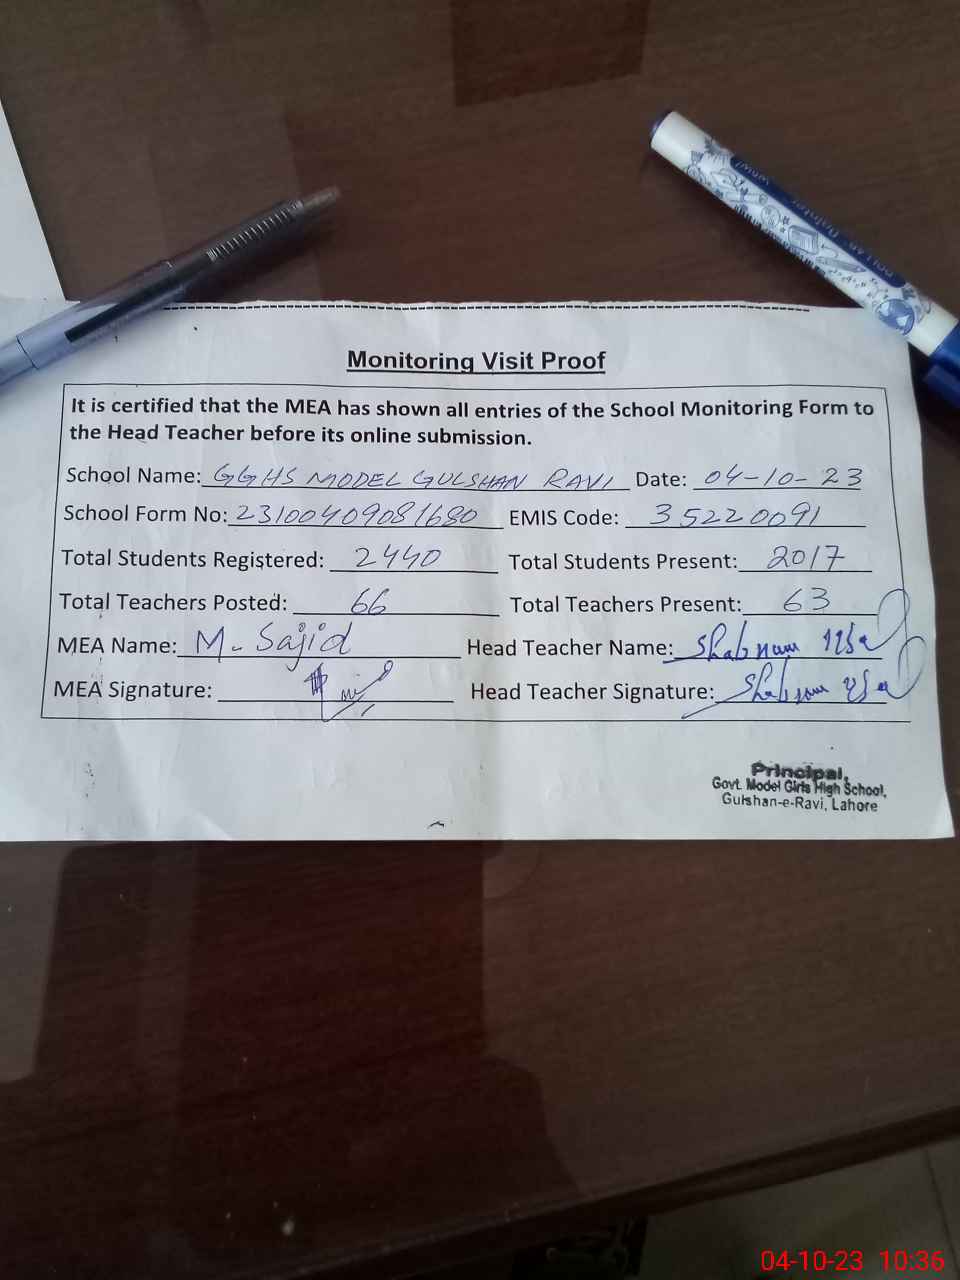 WOW!
DOLLAR Pointer
Monitoring Visit Proof
It is certified that the MEA has shown all entries of the School Monitoring Form to
the Head Teacher before its online submission.
School Name: GGHS MODEL GULSHAN RAVI Date: 04-10-23
School Form No: 23100409081680 EMIS Code: 35220091
Total Students Registered: 2440 Total Students Present: 2017
Total Teachers Posted: 66 Total Teachers Present: 63
MEA Name: M. Sajid Head Teacher Name: Shabnam
MEA Signature: Head Teacher Signature: Shabnam
Principal,
Govt. Model Girls High School,
Gulshan-e-Ravi, Lahore
04-10-23 10:36